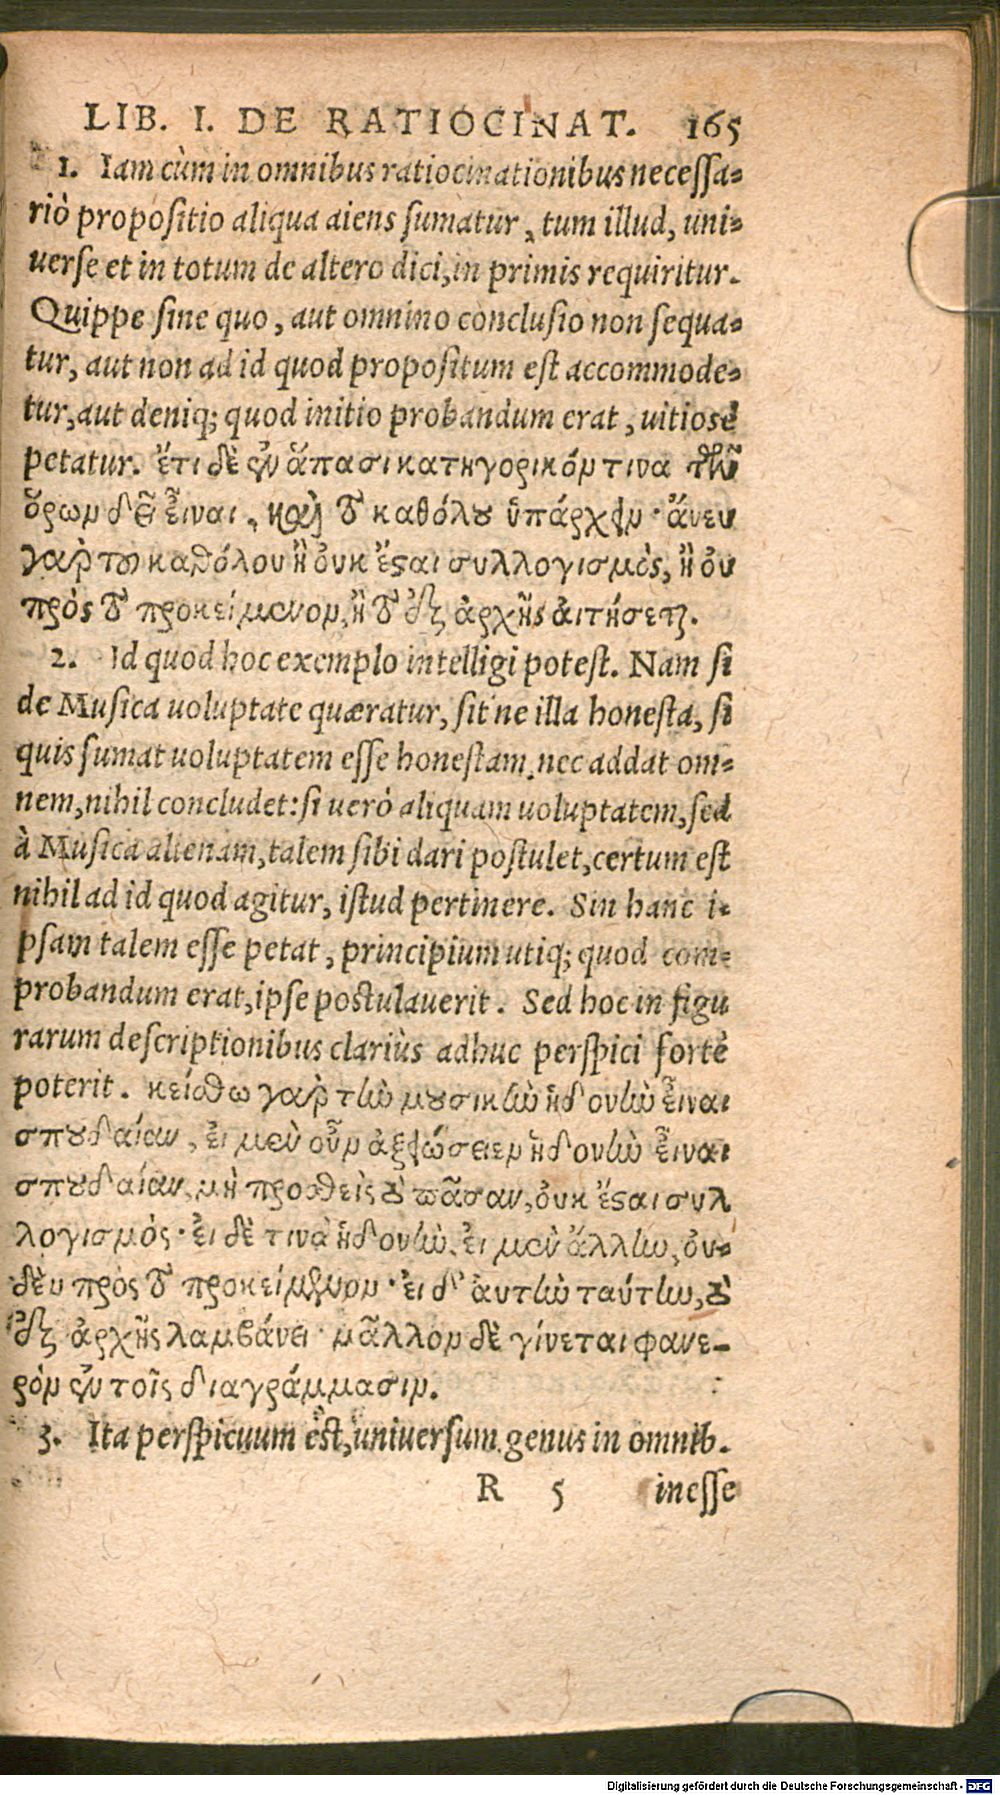 LIB. I. DE RATIOCINAT. 165
1. Iam cùm in omnibus ratiocinationibus necessa-
riò propositio aliqua aiens sumatur, tum illud, uni-
uerse et in totum de altero dici, in primis requiritur.
Quippe sine quo, aut omnino conclusio non sequa-
tur, aut non ad id quod propositum est accommode-
tur, aut deniq; quod initio probandum erat, uitiosè
petatur. ἔτι δὲ ἐν ἅπασι κατηγορικόν τινα τῶν
ὅρων δεῖ εἶναι, καὶ τὸ καθόλου ὑπάρχειν· ἄνευ
γὰρ τοῦ καθόλου ἢ οὐκ ἔσται συλλογισμὸς, ἢ οὐ
πρὸς τὸ προκείμενον, ἢ τὸ ἐξ ἀρχῆς αἰτήσεται.
2. Id quod hoc exemplo intelligi potest. Nam si
de Musica uoluptate quæratur, sit ne illa honesta, si
quis sumat uoluptatem esse honestam, nec addat om-
nem, nihil concludet: si uerò aliquam uoluptatem, sed
à Musica alienam, talem sibi dari postulet, certum est
nihil ad id quod agitur, istud pertinere. Sin hanc i-
psam talem esse petat, principium utiq; quod com-
probandum erat, ipse postulauerit. Sed hoc in figu
rarum descriptionibus clariùs adhuc perspici fortè
poterit. κείσθω γὰρ τὴν μουσικὴν ἡδονὴν εἶναι
σπουδαίαν, εἰ μὲν οὖν ἀξιώσειεν ἡδονὴν εἶναι
σπουδαίαν, μὴ προσθεὶς τὸ πᾶσαν, οὐκ ἔσται συλ
λογισμός· εἰ δὲ τινὰ ἡδονὴν, εἰ μὲν ἄλλην, οὐ-
δὲν πρὸς τὸ προκείμενον· εἰ δ' αὐτὴν ταύτην, τὸ
ἐξ ἀρχῆς λαμβάνει· μᾶλλον δὲ γίνεται φανε-
ρὸν ἐν τοῖς διαγράμμασιν.
3. Ita perspicuum est, uniuersum genus in omnib.
R 5 inesse
Digitalisierung gefördert durch die Deutsche Forschungsgemeinschaft - DFG